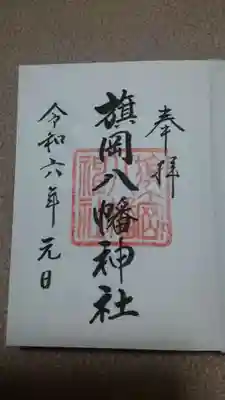 奉拝
旗岡八幡神社
令和六年 元日